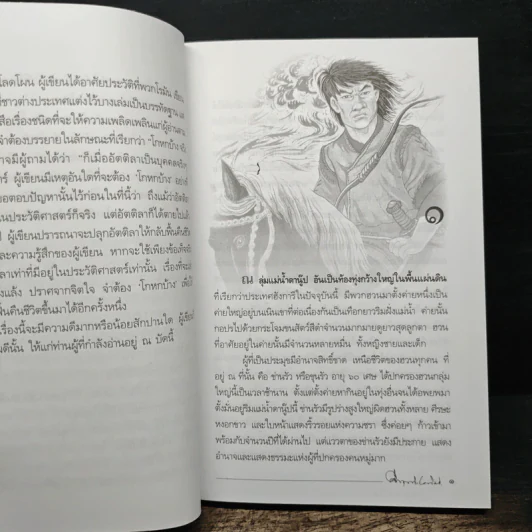 โลดโผน ผู้เขียนได้อาศัยประวัติที่พวกโรมัน เขียน
ชาวต่างประเทศแต่งไว้บางเล่มเป็นบรรทัดฐาน
สือเรื่องชนิดที่จะให้ความเพลิดเพลินแก่ผู้อ่าน
จำต้องบรรยายในลักษณะที่เรียกว่า "โกหกบ้าง
าจมีผู้ถามได้ว่า "ก็เมื่ออัตติลาเป็นบุคคลจริง
ร์ ผู้เขียนมีเหตุอันใดที่จะต้อง 'โกหกบ้าง'
อตอบปัญหานั้นไว้ก่อนในที่นี้ว่า ถึงแม้ว่าอัตติลา
นประวัติศาสตร์ก็จริง แต่อัตติลาก็ได้ตายไปแล้ว
ผู้เขียนปรารถนาจะปลุกอัตติลาให้กลับฟื้นคืน
ละความรู้สึกของผู้เขียน หากจะใช้เพียงข้อเท็จจริง
ลาเท่าที่มีอยู่ในประวัติศาสตร์เท่านั้น เรื่องที่จะ
งแล้ง ปราศจากจิตใจ จำต้อง 'โกหกบ้าง'
ฟื้นคืนชีวิตขึ้นมาได้อีกครั้งหนึ่ง
เรื่องนี้จะมีความดีมากหรือน้อยสักปานใด ผู้เขียน
ดีนั้น ให้แก่ท่านผู้ที่กำลังอ่านอยู่ ณ บัดนี้
๑
ณ ลุ่มแม่น้ำดานู๊ป อันเป็นท้องทุ่งกว้างใหญ่ในพื้นแผ่นดิน
ที่เรียกว่าประเทศฮังการีในปัจจุบันนี้ มีพวกฮวนมาตั้งค่ายหนึ่งเป็น
ค่ายใหญ่อยู่บนเนินเขาที่ต่อเนื่องกันเป็นเทือกยาวริมฝั่งแม่น้ำ ค่ายนั้น
กอปรไปด้วยกระโจมขนสัตว์สีดำจำนวนมากมายดูยาวสุดลูกตา ฮวน
ที่อาศัยอยู่ในค่ายนั้นมีจำนวนหลายหมื่น ทั้งหญิงชายและเด็ก
ผู้ที่เป็นประมุขมีอำนาจสิทธิ์ขาด เหนือชีวิตของฮวนทุกคน ที่
อยู่ ณ ที่นั้น คือ ข่านรัว หรือขุนรัว อายุ ๖๐ เศษ ได้ปกครองฮวนกลุ่ม
ใหญ่นี้เป็นเวลาช้านาน ตั้งแต่ตั้งค่ายหากินอยู่ในทุ่งอื่นจนได้อพยพมา
ตั้งมั่นอยู่ริมแม่น้ำดานู๊ปนี้ ข่านรัวมีรูปร่างสูงใหญ่ผิดฮวนทั้งหลาย ศีรษะ
หงอกขาว และใบหน้าแสดงริ้วรอยแห่งความชรา ซึ่งค่อยๆ ก้าวเข้ามา
พร้อมกับจำนวนปีที่ได้ผ่านไป แต่แววตาของข่านรัวยังมีประกาย แสดง
อำนาจและแสดงธรรมะแห่งผู้ที่ปกครองคนหมู่มาก